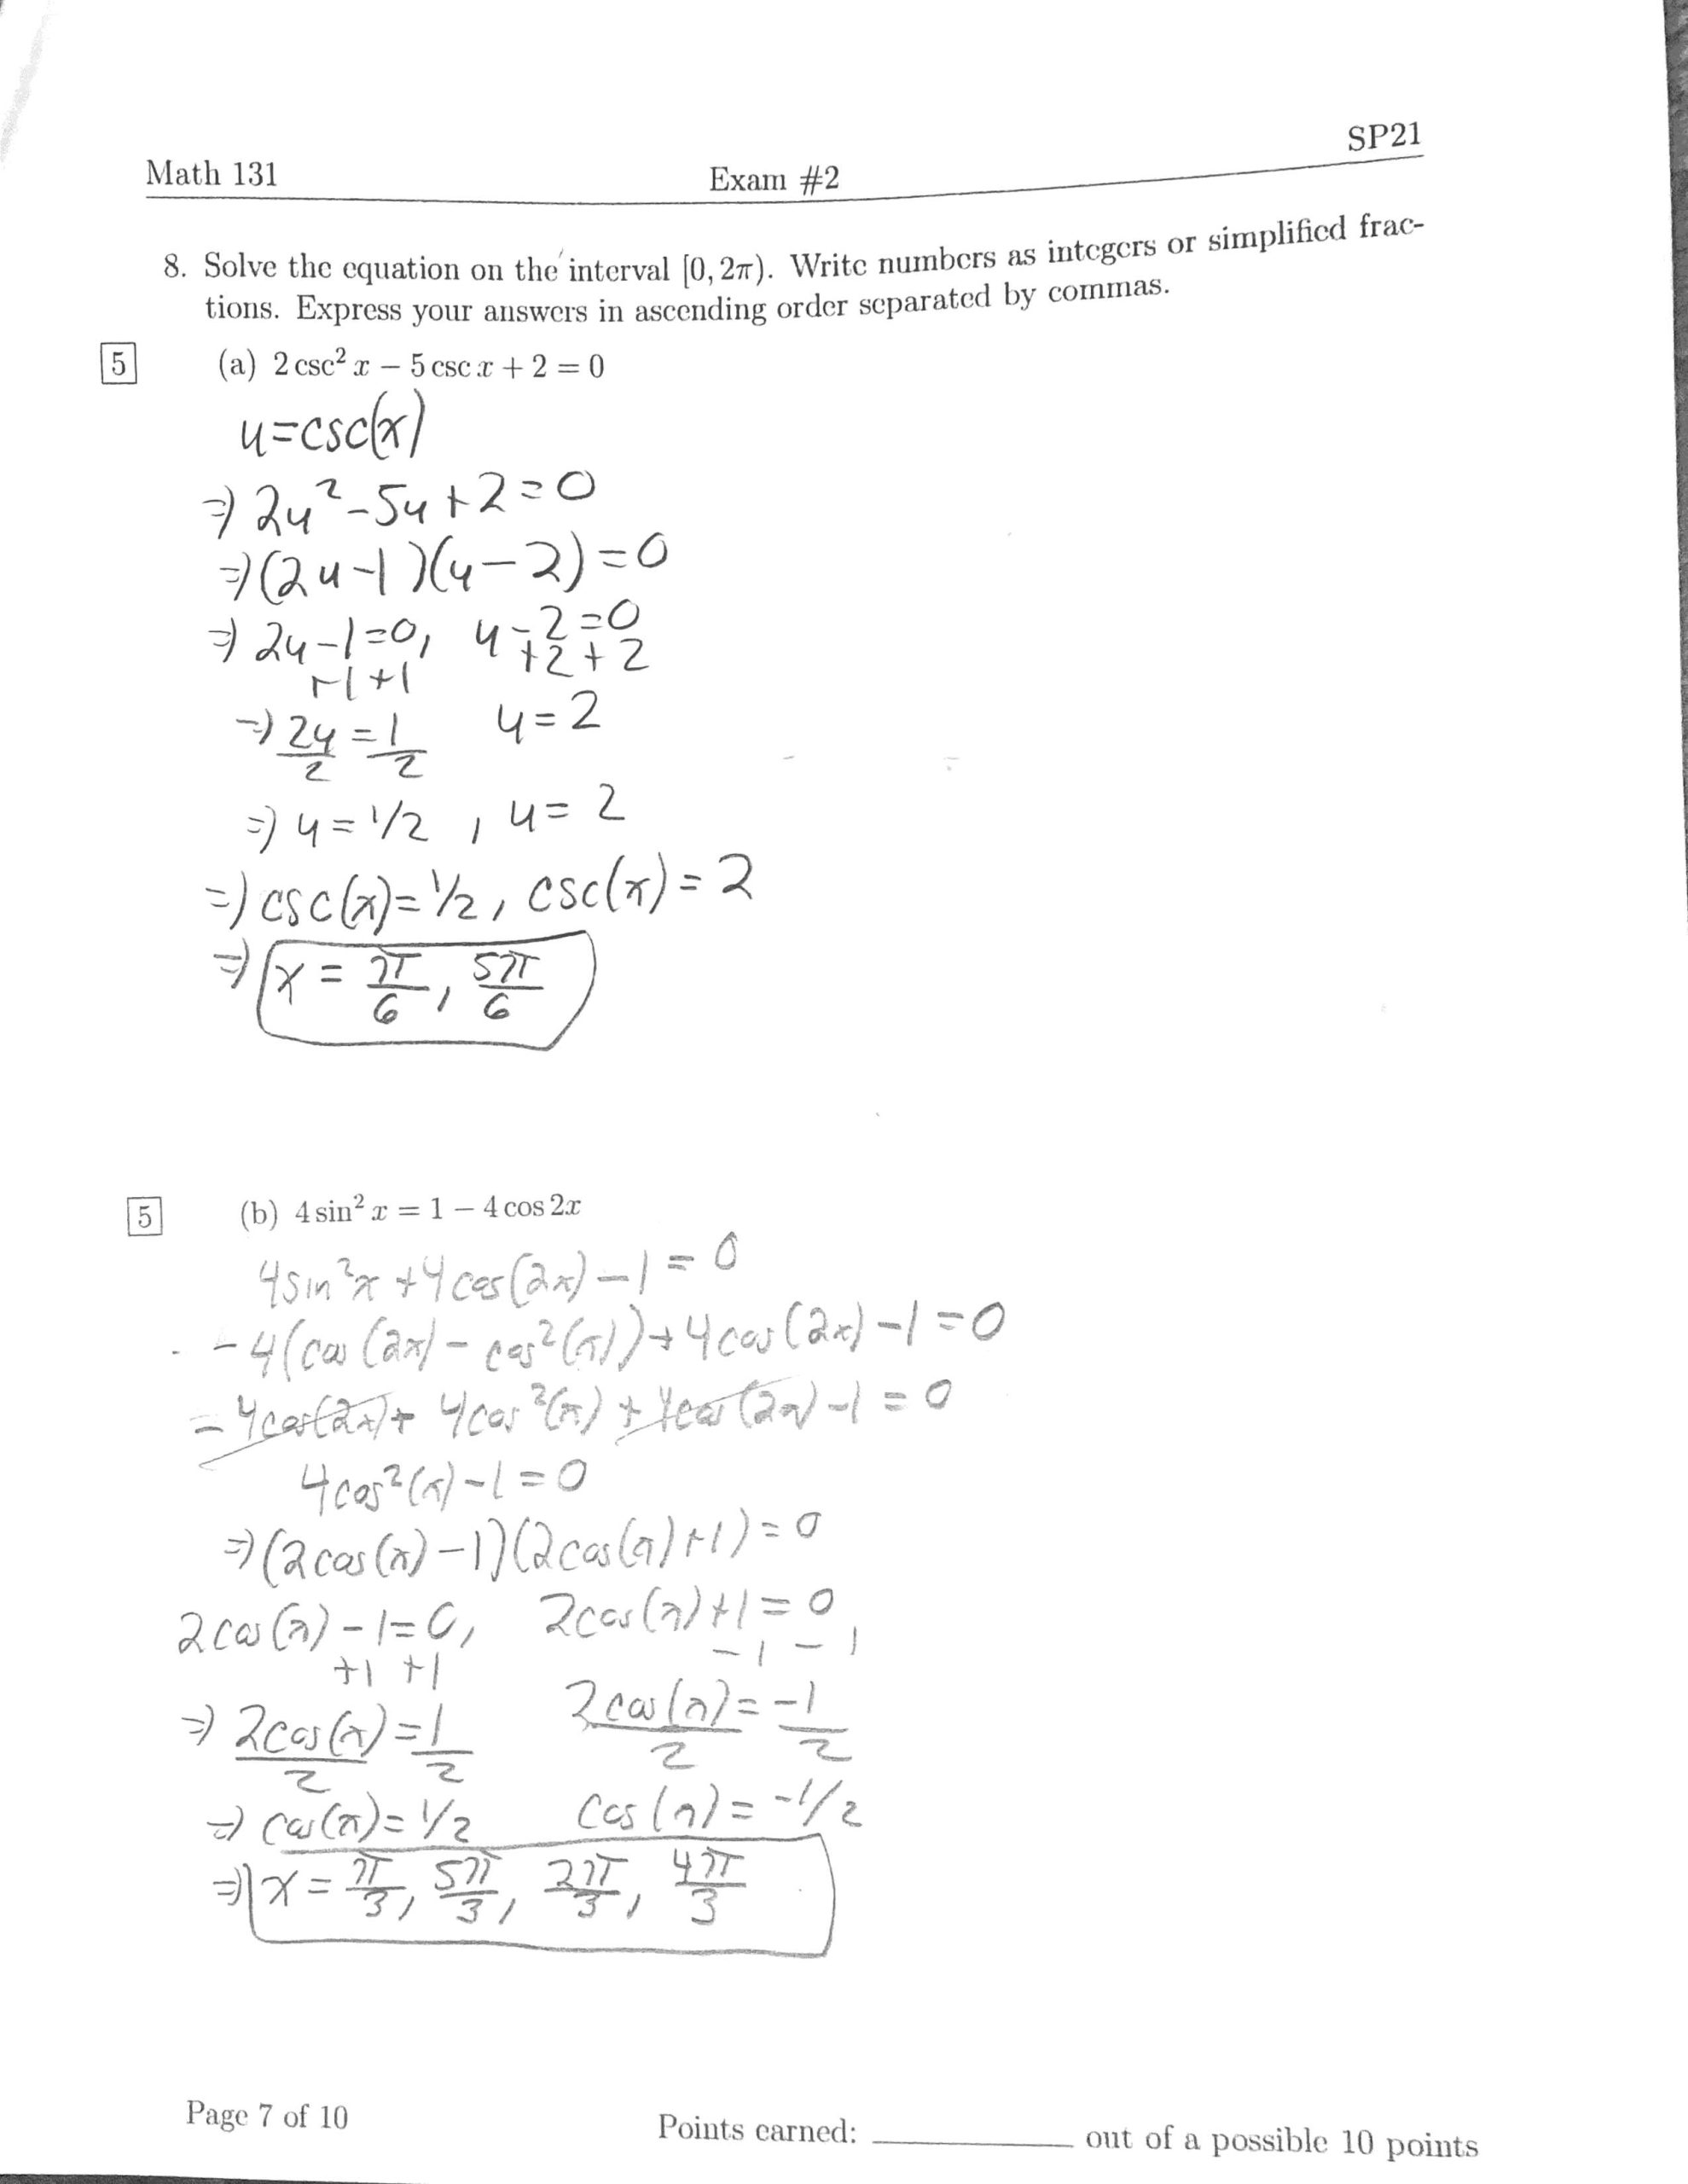 Math 131 Exam #2 SP21
8. Solve the equation on the interval [0, 2π). Write numbers as integers or simplified frac-
tions. Express your answers in ascending order separated by commas.
5 (a) 2 csc² x − 5 csc x + 2 = 0
u=csc(x)
⇒ 2u²-5u+2=0
⇒(2u-1)(u-2)=0
⇒ 2u-1=0, u-2=0
+1 +1 +2 +2
⇒ 2u/2 = 1/2 u=2
⇒ u=1/2 , u=2
⇒ csc(x)=1/2, csc(x)=2
⇒ x = π/6, 5π/6
5 (b) 4 sin² x = 1 − 4 cos 2x
4sin²x+4cos(2x)-1=0
-4(cos(2x)-cos²(x))+4cos(2x)-1=0
-4cos(2x)+4cos²(x)+4cos(2x)-1=0
4cos²(x)-1=0
⇒(2cos(x)-1)(2cos(x)+1)=0
2cos(x)-1=0, 2cos(x)+1=0
+1 +1 -1 -1
⇒ 2cos(x)/2 = 1/2 2cos(x)/2 = -1/2
⇒ cos(x)=1/2 cos(x)=-1/2
⇒ x = π/3, 5π/3, 2π/3, 4π/3
Page 7 of 10 Points earned: ________ out of a possible 10 points